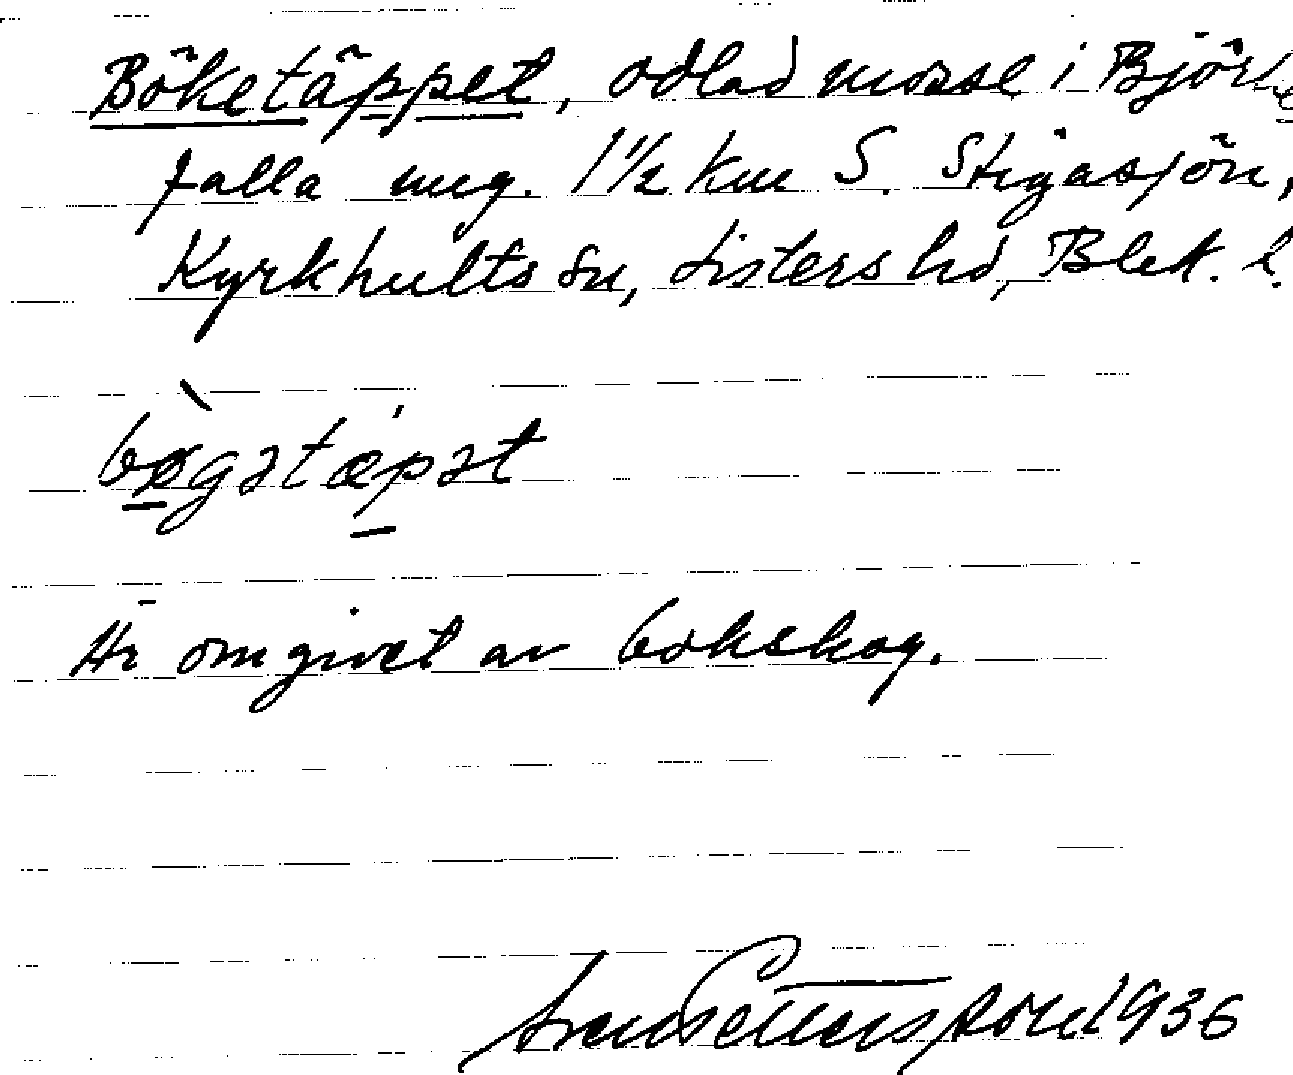 Böketäppet, odlad mosse i Björke
falla mg. 1 1/2 km S. Stigasjön,
Kyrkhults sn, Listers hd, Blek. l.
bøgətæpət
Är omgivet av bokskog.
Pettersson 1936